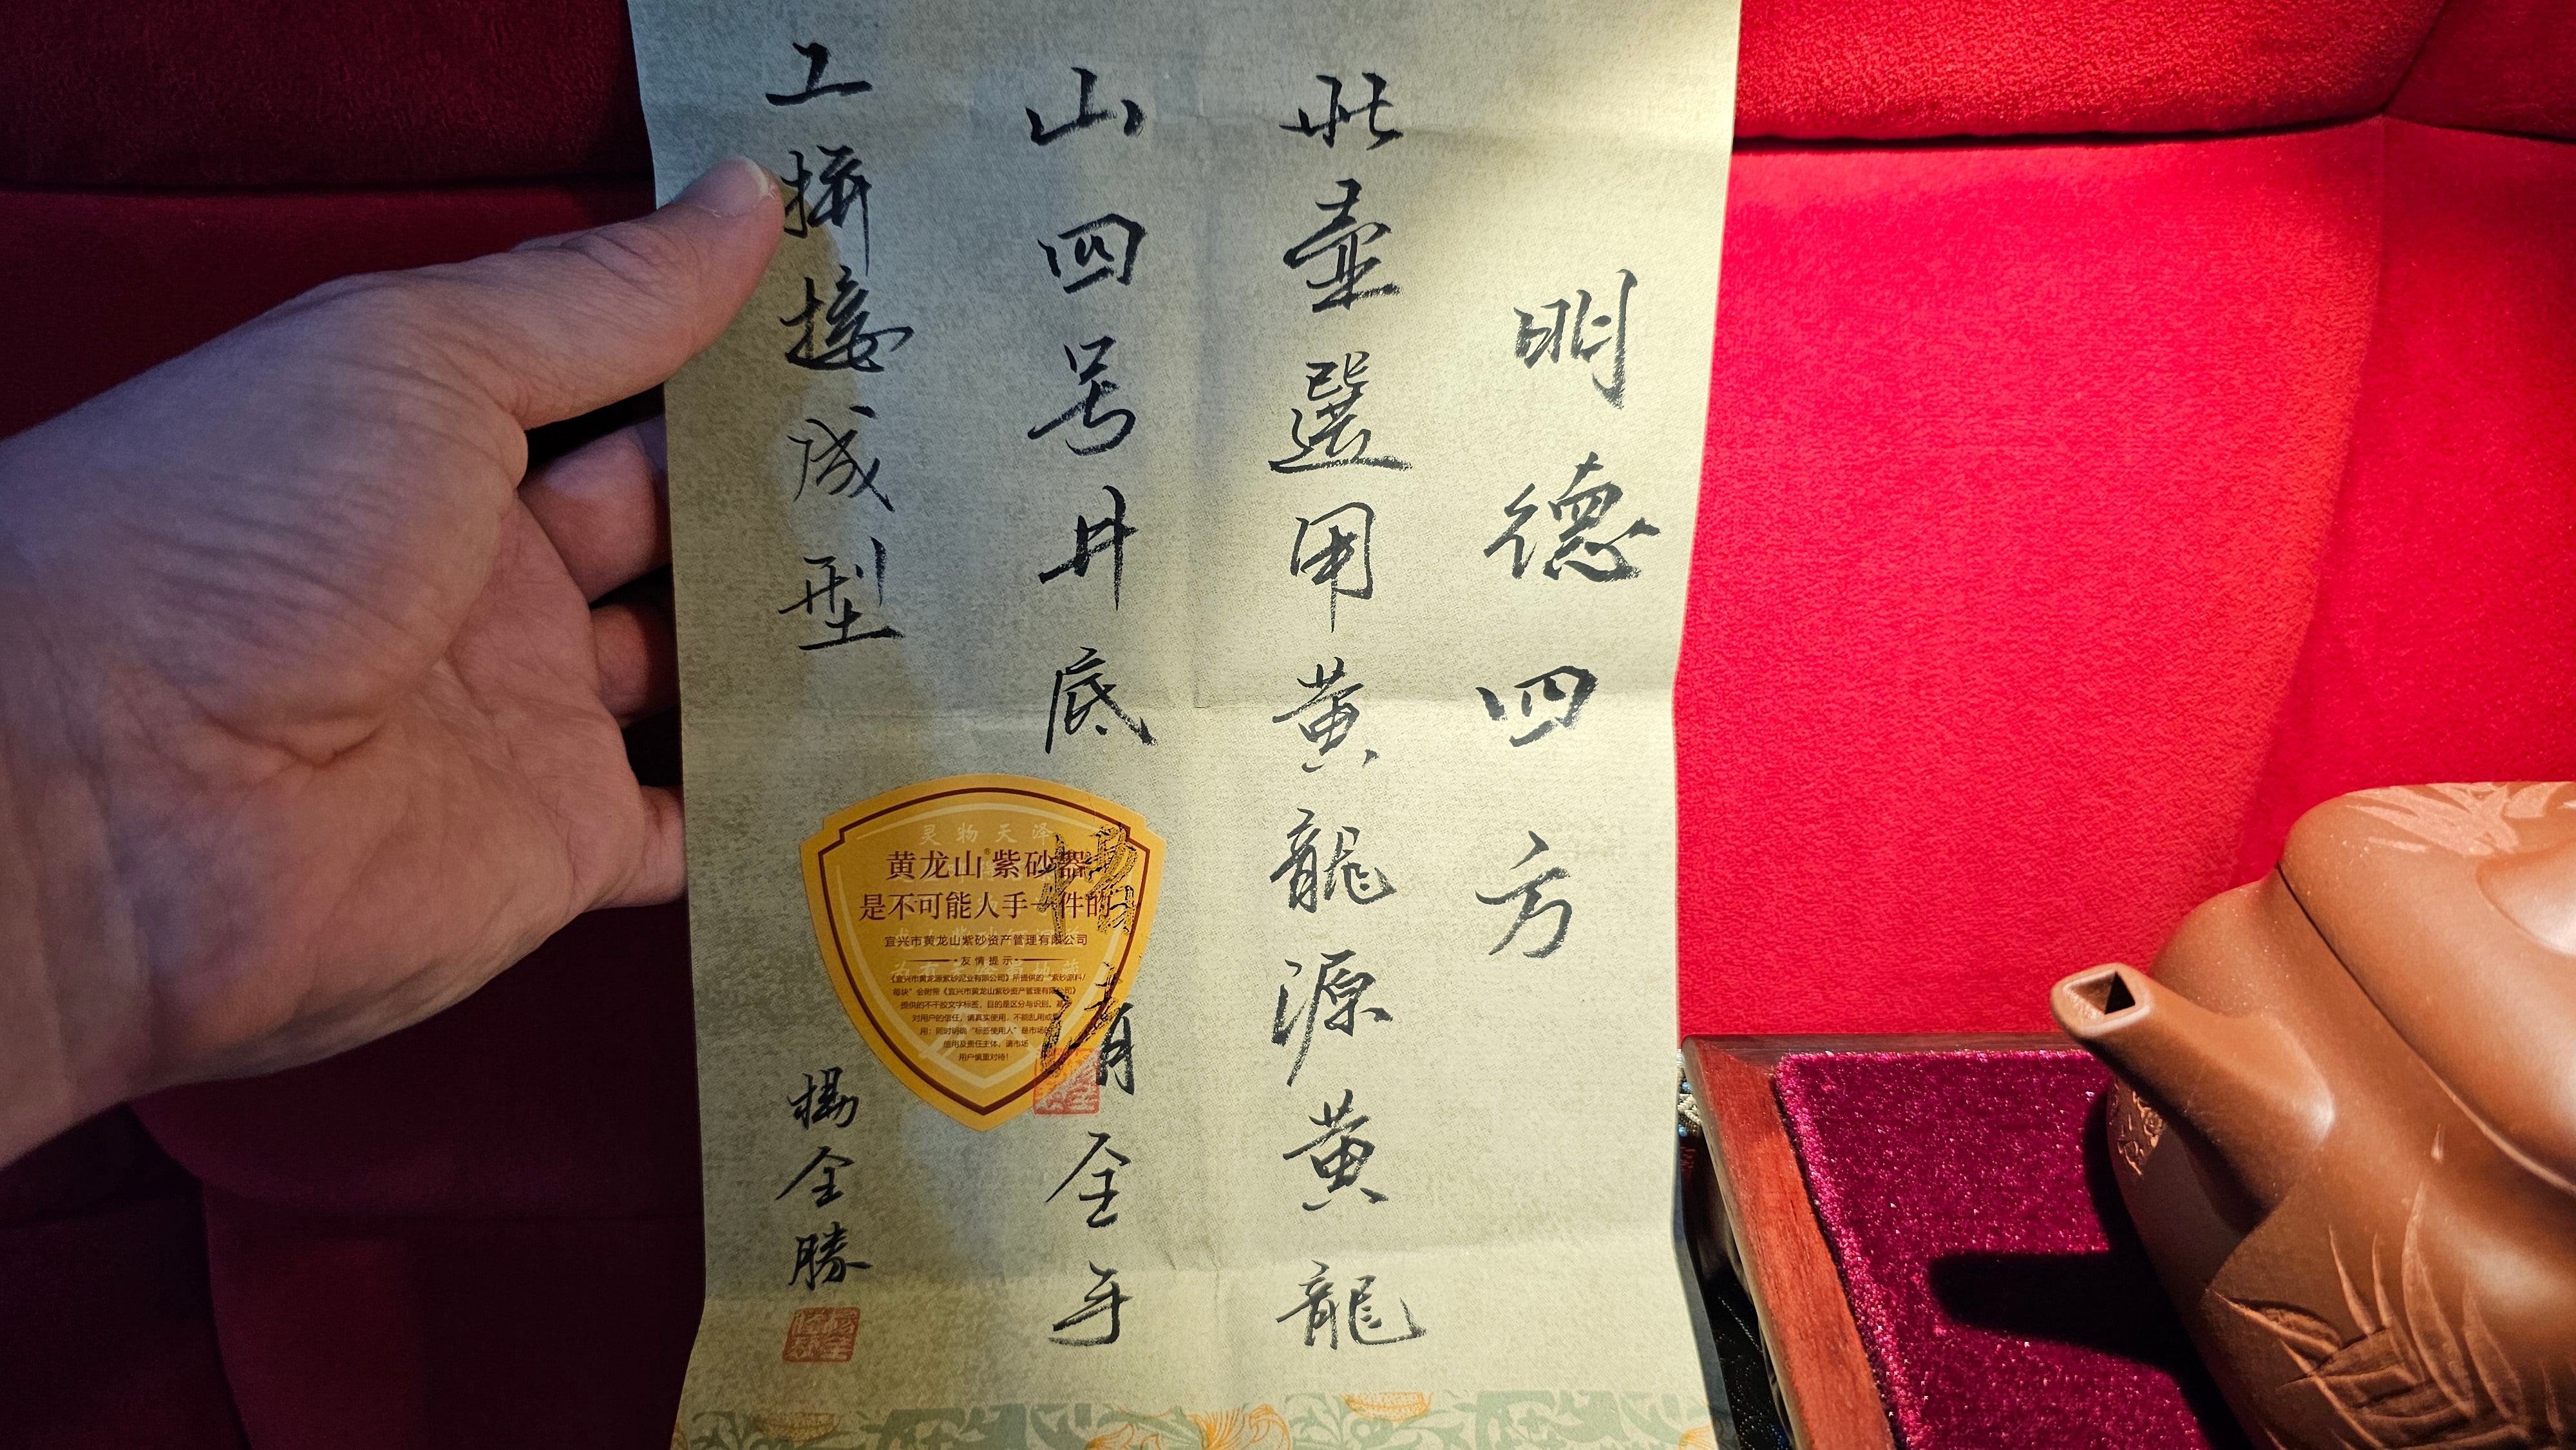 明德四方
此壶選用黄龍源黄龍
山四号井底槽清全手
工拼接成型
楊全勝
灵物天泽
黄龙山®紫砂器
是不可能人手一件的
宜兴市黄龙山紫砂资产管理有限公司
友情提示
《宜兴市黄龙源紫砂泥业有限公司》所提供的“紫砂原料/
每块”会附带《宜兴市黄龙山紫砂资产管理有限公司》
提供的不干胶文字标签，目的是区分与识别。基于
对用户的信任，请真实使用，不能乱用或
用；同时明确“标签使用人”是市场的
信用及责任主体，请市场
用户慎重对待！